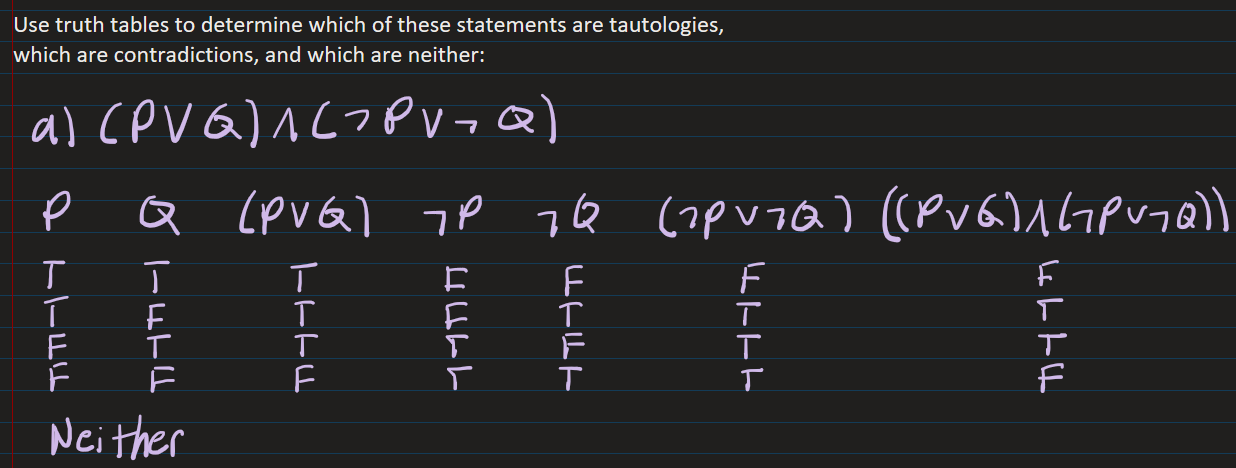 Use truth tables to determine which of these statements are tautologies,
which are contradictions, and which are neither:
a) (P∨Q)∧(¬P∨¬Q)
P Q (P∨Q) ¬P ¬Q (¬P∨¬Q) ((P∨Q)∧(¬P∨¬Q))
T T T F F F F
T F T F T T T
F T T T F T T
F F F T T T F
Neither